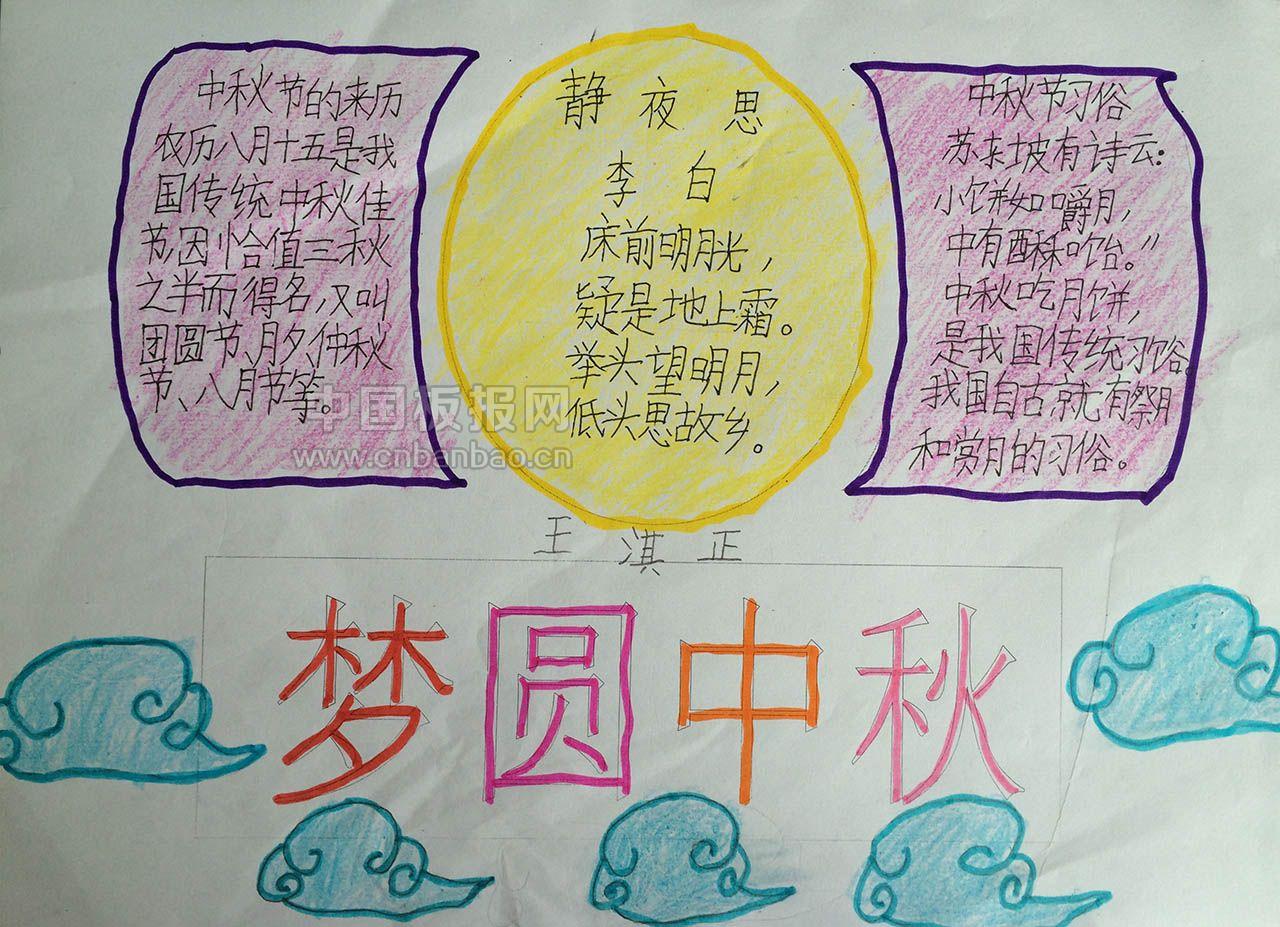 中秋节的来历
农历八月十五是我
国传统中秋佳
节,因恰值三秋
之半而得名,又叫
团圆节、月夕、仲秋
节、八月节等。
静夜思
李白
床前明月光,
疑是地上霜。
举头望明月,
低头思故乡。
中秋节习俗
苏东坡有诗云:
小饼如嚼月,
中有酥和饴。”
中秋吃月饼,
是我国传统习俗。
我国自古就有祭月
和赏月的习俗。
中国板报网
www.cnbanbao.cn
王淇正
梦圆中秋